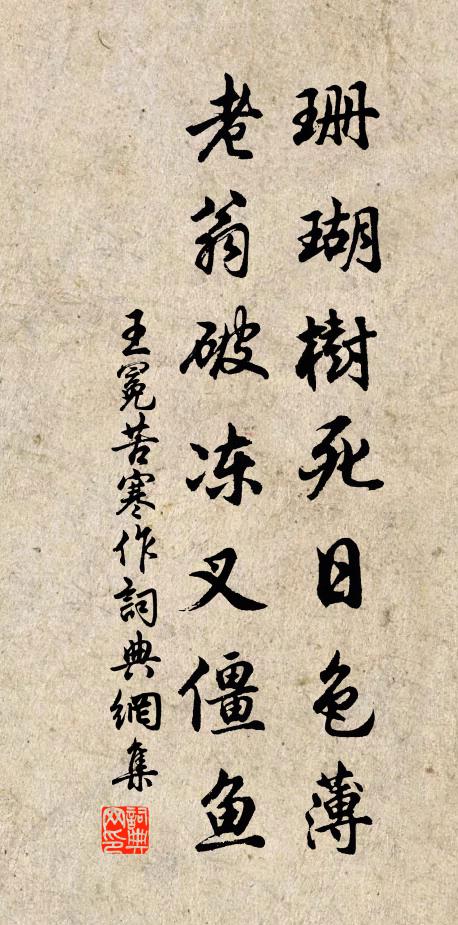 珊瑚樹死日色薄
老翁破冻叉僵鱼
王冕苦寒作詞典網集
詞典网印